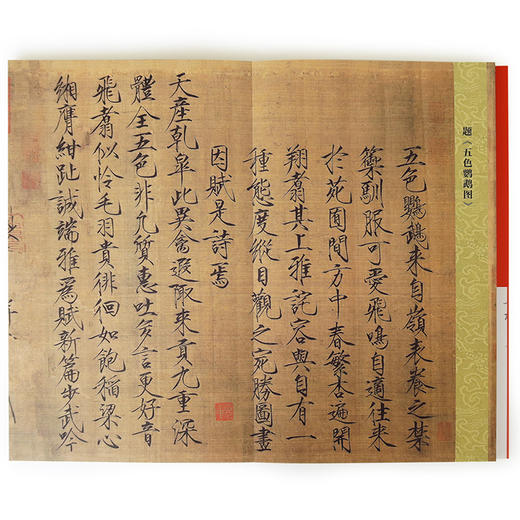 题《五色鹦鹉图》
五色鸚鵡来自嶺表養之禁
籞馴服可愛飛鳴自適往来
於苑囿間方中春繁杏遍開
翔翥其上雅詫容與自有一
種態度縱目觀之宛勝圖畫
因賦是詩焉
天産乾皐此異禽遐陬来貢九重深
體全五色非凡質惠吐多言更好音
飛翥似怜毛羽貴徘徊如飽稻粱心
緗膺紺趾誠端雅為賦新篇步武吟